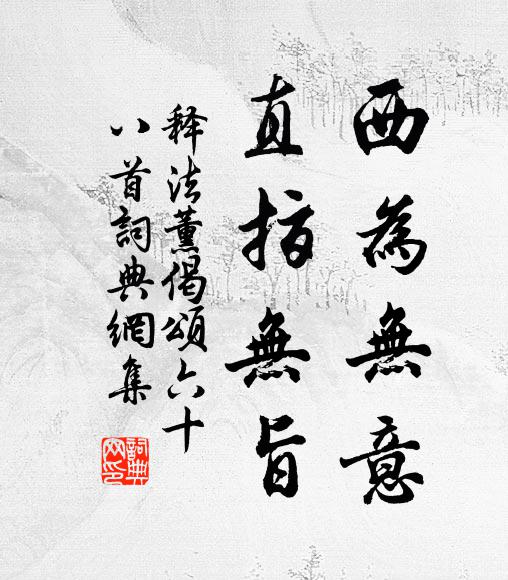 西為無意
直指無旨
释法薰偈頌六十
八首詞典網集
詞典網印